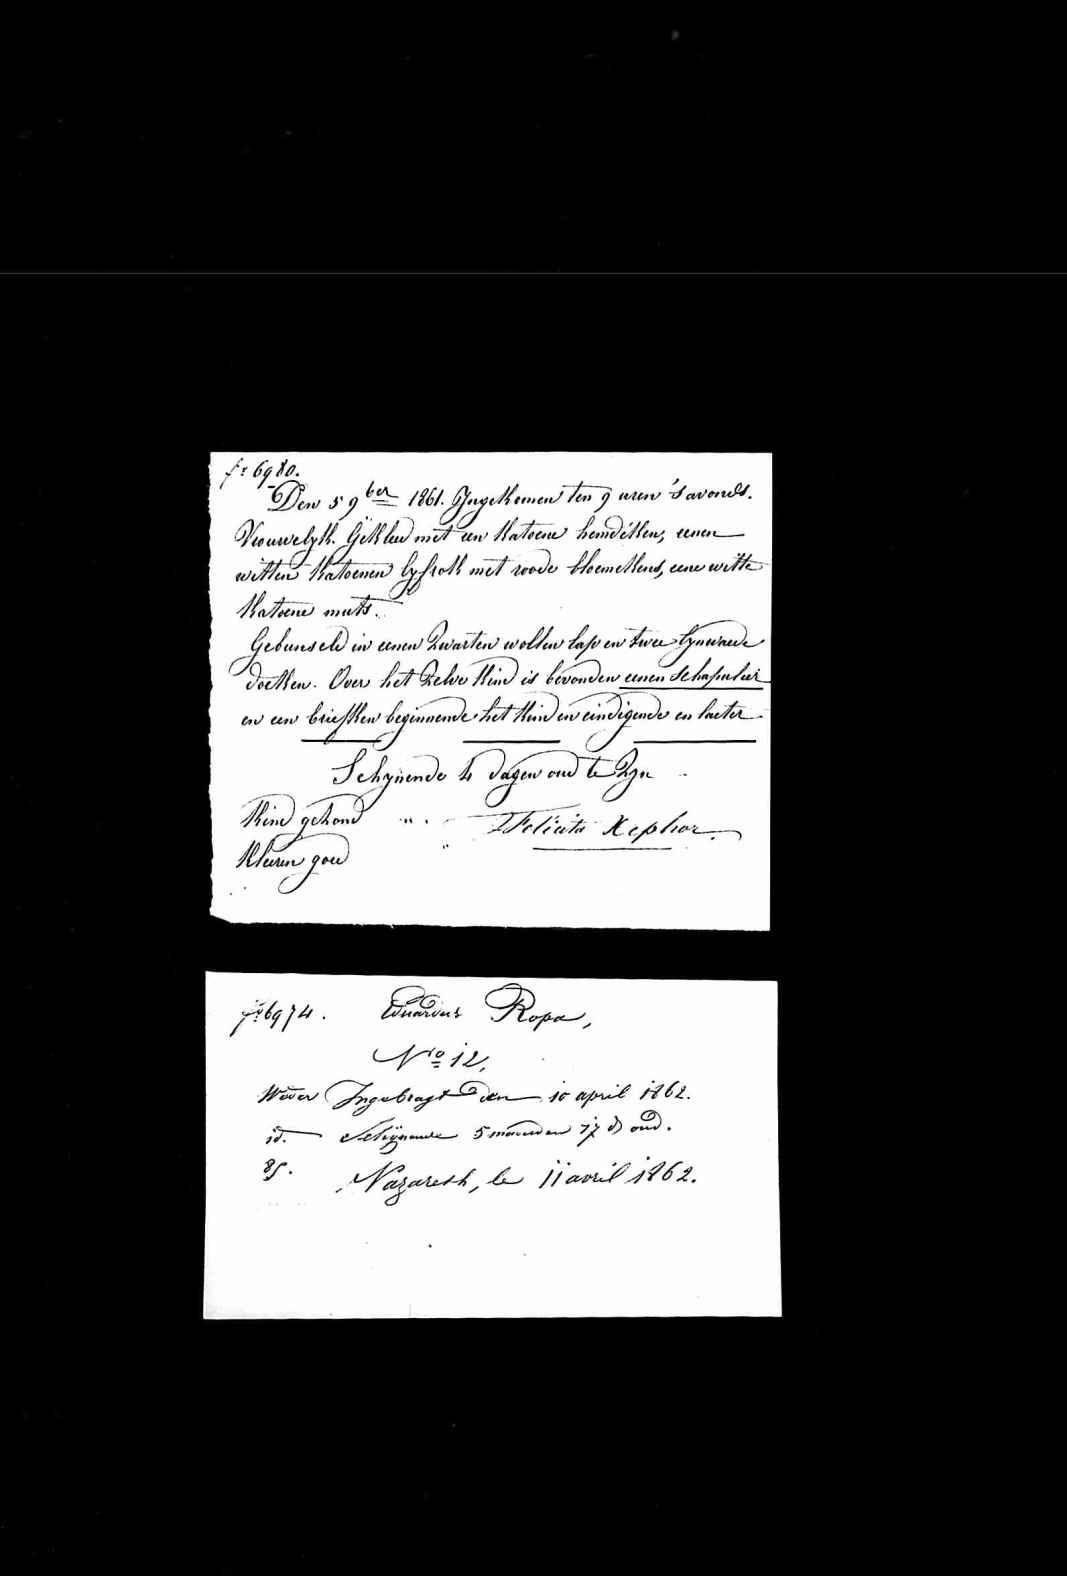 f° 6980.
Den 5 9ber 1861. Ingekomen ten 9 uren 's avonds.
Vrouwelyk. Gekleed met een katoene hemdeken, eenen
witten katoenen lyfrok met roode bloemekens, eene witte
katoene muts.
Gebunseld in eenen zwarten wollen lap en twee lynwaede
doeken. Over het zelve kind is bevonden eenen schapulier
en een briefken beginnende het kind en eindigende en laeter
Schynende 4 dagen oud te zyn
Kind gezond " . Felicita Xephor.
Kleeren goed
f° 6974. Eduardus Ropa,
N° 12,
Weder Ingebragt den 10 april 1862.
id. Schijnende 5 maenden 17 d oud.
Nazareth, le 11 avril 1862.